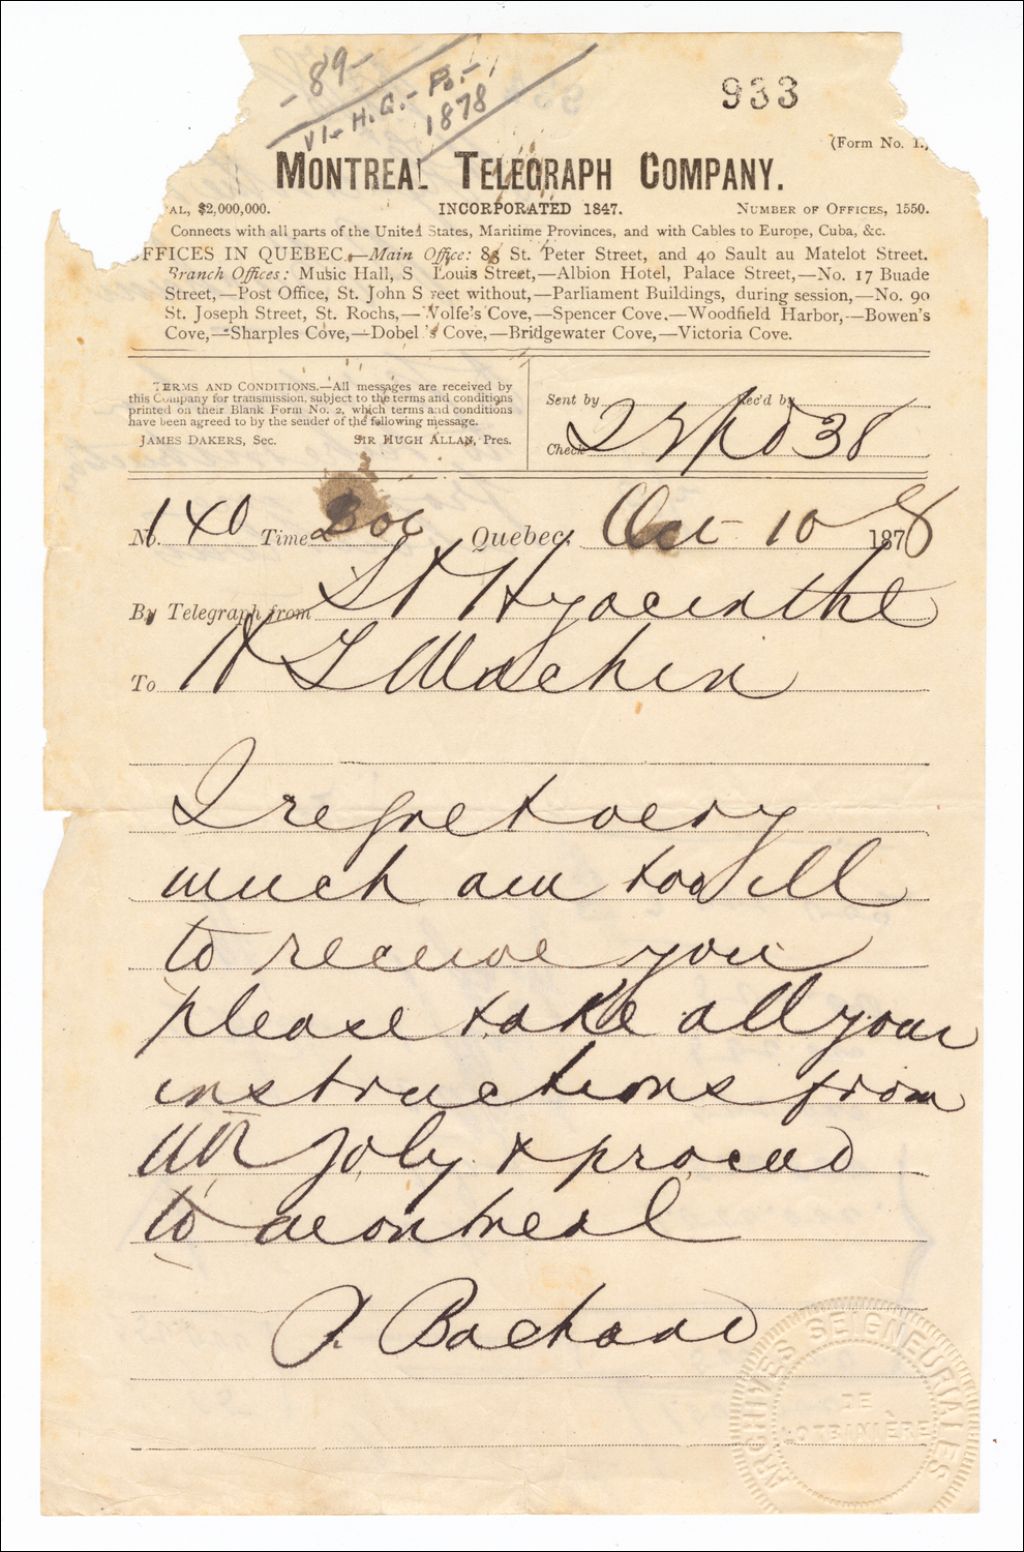 - 89 -
VI - H.G. - Po. -
1878
933
(Form No. 1.)
MONTREAL TELEGRAPH COMPANY.
AL, $2,000,000. INCORPORATED 1847. NUMBER OF OFFICES, 1550.
Connects with all parts of the United States, Maritime Provinces, and with Cables to Europe, Cuba, &c.
OFFICES IN QUEBEC.—Main Office: St. Peter Street, and 40 Sault au Matelot Street.
Branch Offices: Music Hall, S Louis Street,—Albion Hotel, Palace Street,—No. 17 Buade
Street,—Post Office, St. John S reet without,—Parliament Buildings, during session,—No. 90
St. Joseph Street, St. Rochs,—Wolfe's Cove,—Spencer Cove,—Woodfield Harbor,—Bowen's
Cove,—Sharples Cove,—Dobel 's Cove,—Bridgewater Cove,—Victoria Cove.
TERMS AND CONDITIONS.—All messages are received by
this Company for transmission, subject to the terms and conditions
printed on their Blank Form No. 2, which terms and conditions
have been agreed to by the sender of the following message.
JAMES DAKERS, Sec. SIR HUGH ALLAN, Pres.
Sent by Rec'd by
Check 38
No. 140 Time Quebec, Oct 10 1878
By Telegraph from St Hyacinthe
To H T Machin
I regret very
much am too ill
to receive you
please take all your
instructions from
Mr Joly & proceed
to Montreal
P. Bachand
ARCHIVES SEIGNEURIALES
DE
LOTBINIÈRE